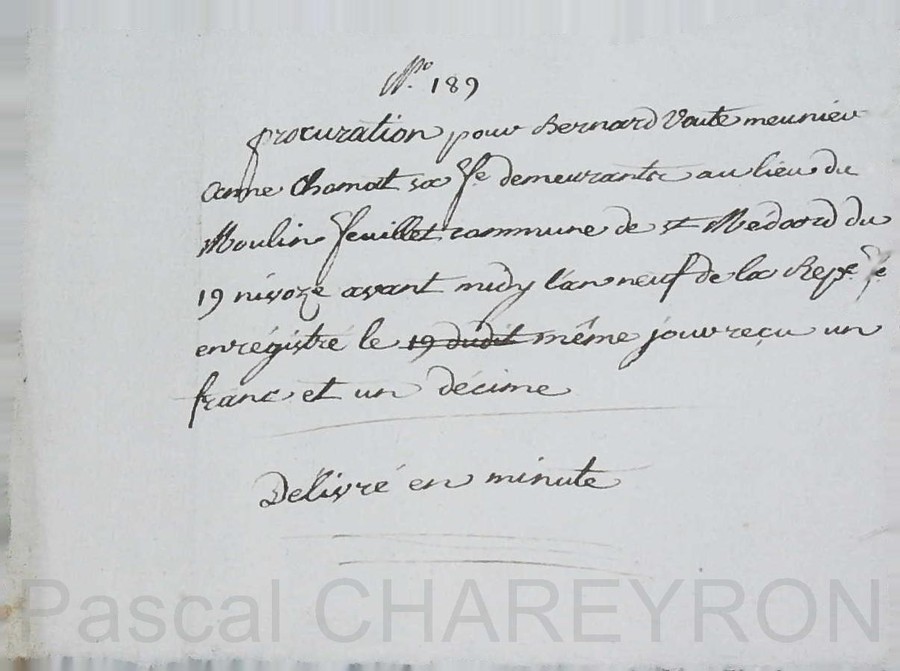 N.o 189
procuration pour Bernard Voute meunier
anne Chomat sa fe demeurants au lieu du
Moulin feuillet commune de st Médard du
19 nivoze avant midy l'an neuf de la Repe. fe
enrégistré le 19 dudit même jour reçu un
franc et un décime
Délivré en minute
Pascal CHAREYRON